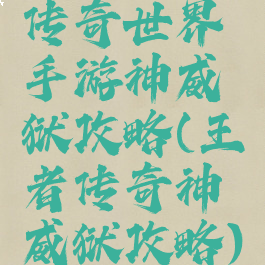 传奇世界
手游神威
狱攻略(王
者传奇神
威狱攻略)